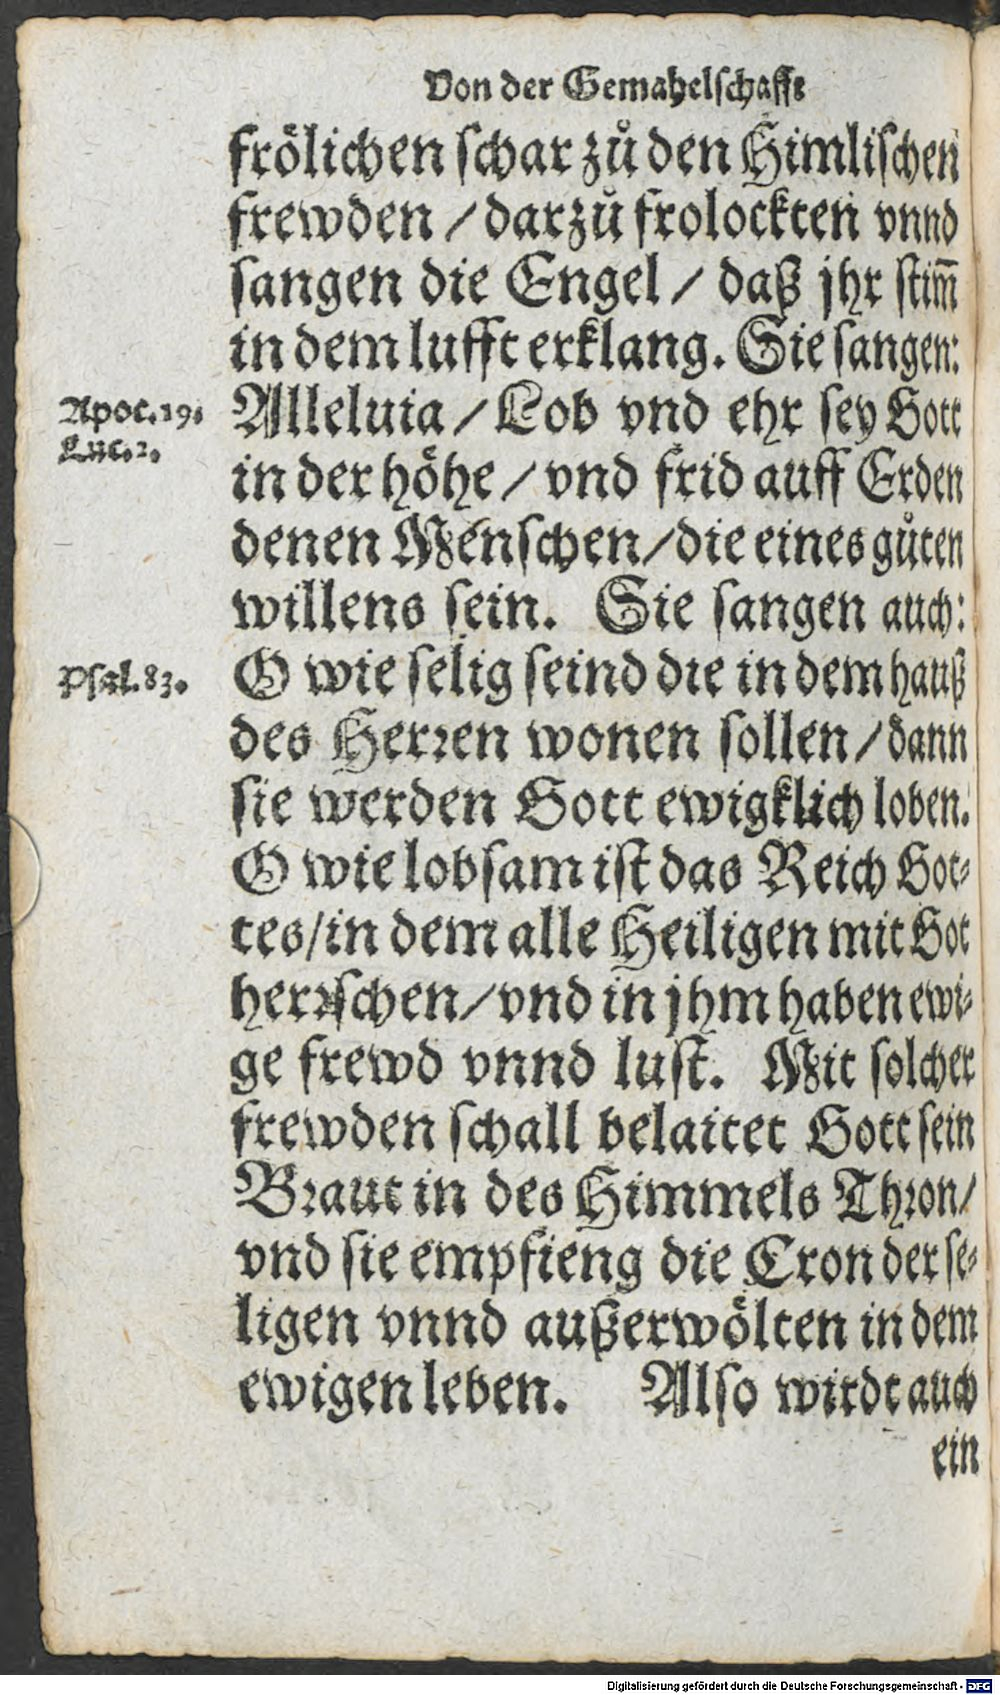 Von der Gemahelschafft
frölichen schar zů den Himlischen
frewden / darzů frolockten vnnd
sangen die Engel / daß jhr stim̃
in dem lufft erklang. Sie sangen:
Apoc. 19. Alleluia / Lob vnd ehr sey Gott
Luc. 2. in der höhe / vnd frid auff Erden
denen Menschen / die eines gůten
willens sein. Sie sangen auch:
Psal. 83. O wie selig seind die in dem hauß
des Herꝛen wonen sollen / dann
sie werden Gott ewigklich loben.
O wie lobsam ist das Reich Got-
tes / in dem alle Heiligen mit Got
herꝛschen / vnd in jhm haben ewi-
ge frewd vnnd lust. Mit solcher
frewden schall belaitet Gott sein
Bꝛaut in des Himmels Thꝛon /
vnd sie empfieng die Cron der se-
ligen vnnd außerwölten in dem
ewigen leben. Also wirdt auch
ein
Digitalisierung gefördert durch die Deutsche Forschungsgemeinschaft - DFG